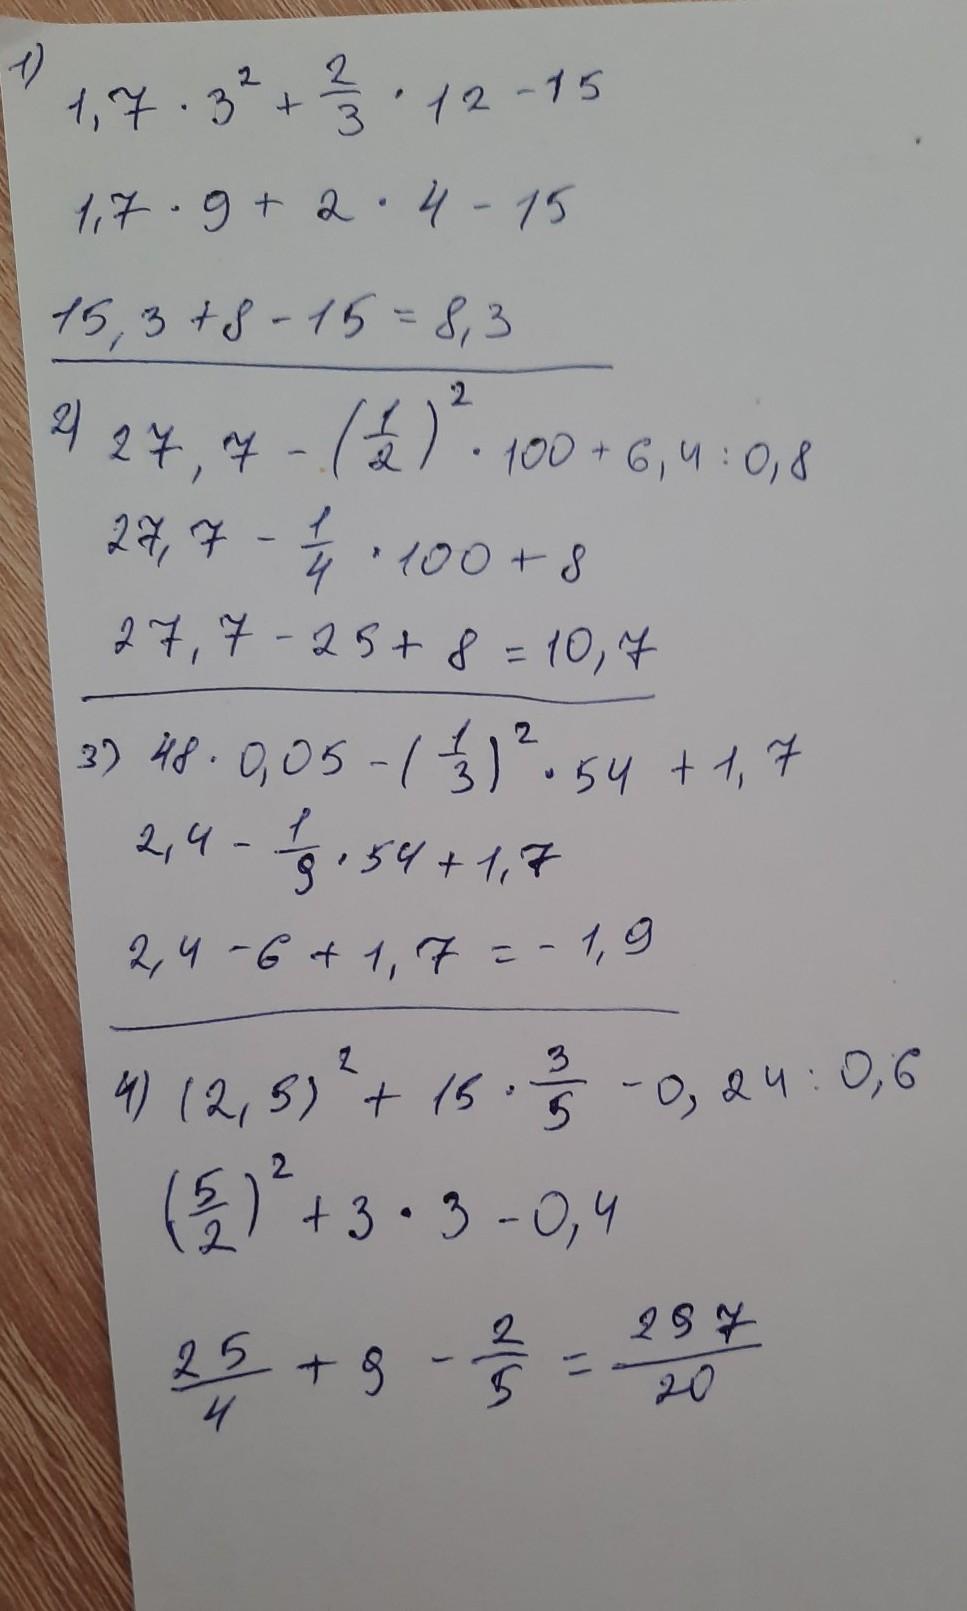 1) 1,7 · 3² + 2/3 · 12 - 15
1,7 · 9 + 2 · 4 - 15
15,3 + 8 - 15 = 8,3
2) 27,7 - (1/2)² · 100 + 6,4 : 0,8
27,7 - 1/4 · 100 + 8
27,7 - 25 + 8 = 10,7
3) 48 · 0,05 - (1/3)² · 54 + 1,7
2,4 - 1/9 · 54 + 1,7
2,4 - 6 + 1,7 = - 1,9
4) (2,5)² + 15 · 3/5 - 0,24 : 0,6
(5/2)² + 3 · 3 - 0,4
25/4 + 9 - 2/5 = 297/20